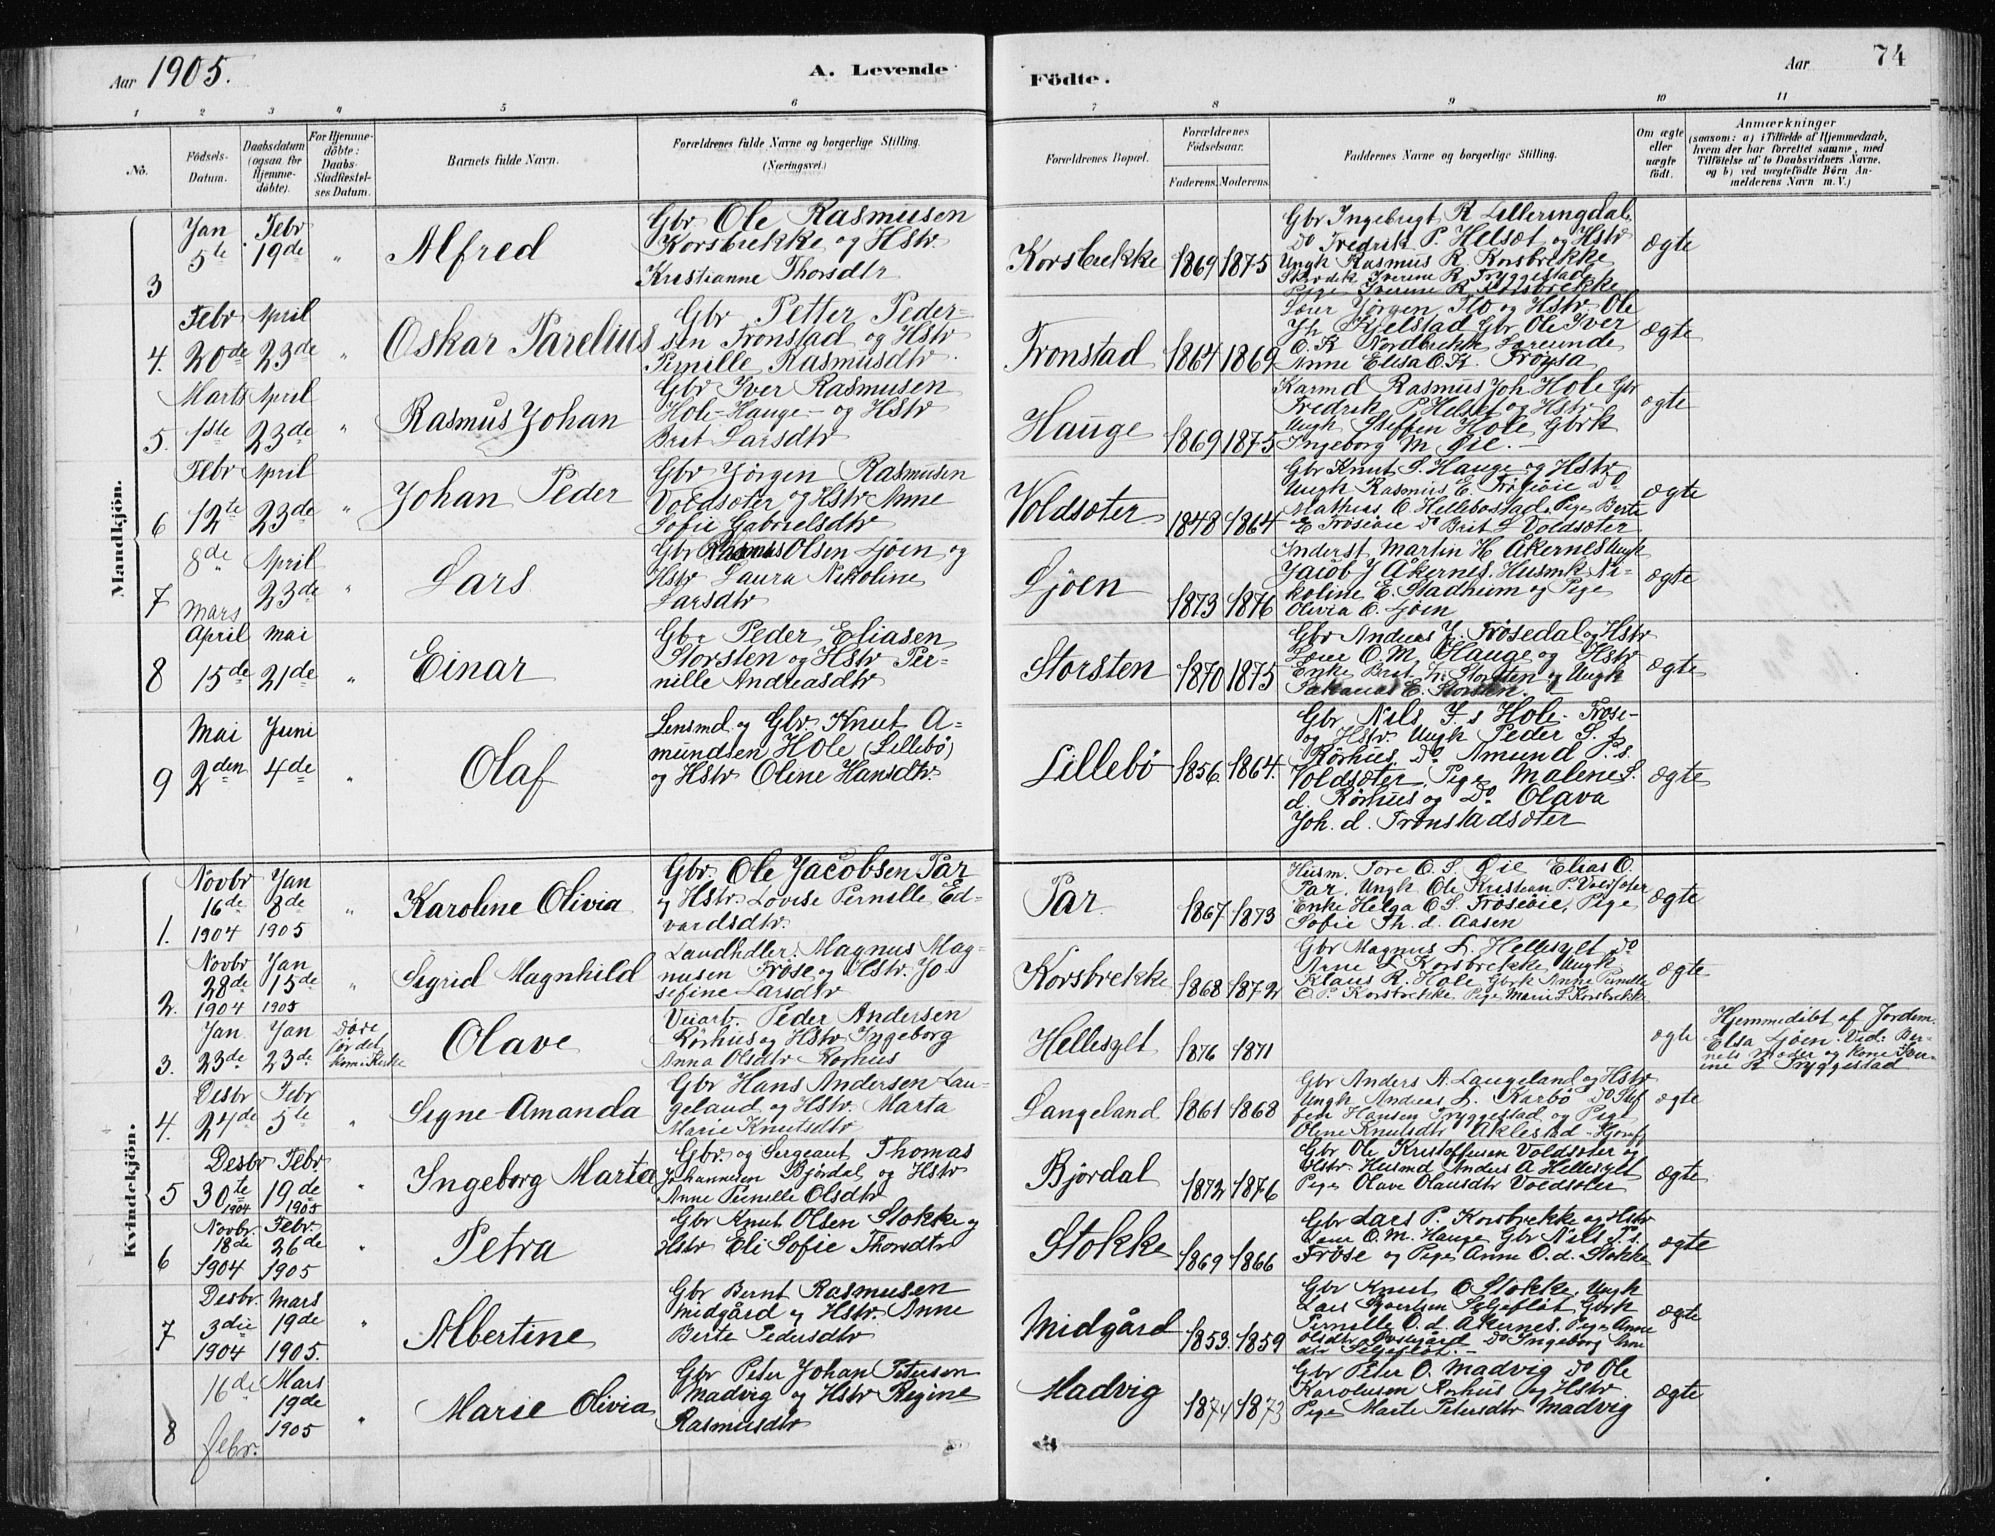 Aar 1905. A. Levende Födte. Aar 74
1 2 3 4 5 6 7 8 9 10 11
No.
Födsels-Datum.
Daabsdatum (ogsaa for Hjemme-döbte).
For Hjemme-döbte: Daabs-Stadfæstel-ses Datum.
Barnets fulde Navn.
Forældrenes fulde Navne og borgerlige Stilling.
(Næringsvei.)
Forældrenes Bopæl.
Forældrenes Födselsaar.
Faderens. Moderens.
Faddernes Navne og borgerlige Stilling.
Om ægte eller uægte födt.
Anmærkninger
(saasom: a) i Tilfælde af Hjemmedaab,
hvem der har forrettet samme, med
Tilföielse af to Daabsvidners Navne,
og b) ved uægtefödte Börn An-
melderens Navn m. V.)
Mandkjön.
3 Jan 5te Febr 19de " Alfred
Gbr Ole Rasmusen
Korsbrekke og Hstr
Kristianne Thorsdtr
Korsbrekke 1869 1875
Gbr Ingebrigt R Lilleringdal
Do Fredrik P. Helset og Hstr
Ungk Rasmus R Korsbrekke
Iverine R Tryggestad
Pige Iverine R Korsbrekke
ægte
4. Febr 20de April 23de " Oskar Parelius
Gbr Petter Peder-
sen Tronstad og Hstr
Pernille Rasmusdtr
Tronstad 1864 1869
Lærer Jørgen Flo og Hstr Ole
Kjelstad Gbr Ole Iver
O. K Nordbrekk
Anne Elisa O. K. Frøysa
ægte
5. Marts 1ste April 23de " Rasmus Johan
Gbr Iver Rasmusen
Hole-Hauge- og Hstr
Brit Larsdtr
Hauge 1869 1875
Karmd Rasmus Joh Hole Gbr
Fredrik P Helset og Hstr
Ungk Steffen Hole Gbrk
Ingeborg M Øie.-
ægte
6 Febr 12te April 23de " Johan Peder
Gbr Jørgen Rasmusen
Voldsæter og Hstr Anne
Sofie Gabrielsdtr
Voldsæter 1848 1864
Gbr Knut S. Hauge og Hstr
Ungk Rasmus E. Frøsøie Do
Mathias O. Hellebostad Pige Berte
E Frøsøie Do Brit S Voldsæter
ægte
7 8de Mars April 23de " Lars
Gbr Rasmus Olsen Ljøen og
Hstr Laura Nikoline
Larsdtr
Ljøen 1873 1876
Inderst Martin H Åkernes Ungk
Jacob J Åkernes. Husmk Ni-
koline E. Stadheim og Pige
Olivia O. Ljøen
ægte
8 April 15de Mai 21de " Einar
Gbr Peder Eliasen
Storsten og Hstr Per-
nille Andreasdtr
Storsten 1870 1875
Gbr Andreas J. Frøsedal og Hstr
Lærer O. M. Hauge og Hstr
Enke Brit Storsten og Ungk
E. Storsten.
ægte
9 Mai 2den Juni 4de " Olaf
Lensmd. og Gbr. Knut A-
mundsen Hole (Lillebø)
og Hstr Oline Hansdtr
Lillebø 1856 1864.
Gbr Nils J. s Hole. Frøse-
og Hstr. Ungk Peder S. s
Rørhus Do Amund P. s.
Voldsæter, Pige Malene S.
d. Rørhus og Do Olava
Joh. d. Tronstadsæter
ægte
Kvindekjön.
1. Novbr 16de 1904 Jan 8de 1905 " Karoline Olivia
Gbr. Ole Jacobsen Tar
og Hstr. Lovise Pernille Ed-
vardsdtr.
Tar 1867 1873
Husm. Tore O. S. Øie Elias O.
Tar. Ungk Ole Kristian P. Voldsæter
Enke Helga O. S. Frøsøie, Pige
Sofie Th. d. Aasen
ægte
2. Novbr 28de 1904 Jan 15de 1905 " Sigrid Magnhild
Landhdler. Magnus Mag-
nusen Frøse og Hstr. Jo-
sefine Larsdtr
Korsbrekke 1868 1872
Gbr Magnus L. Hellesylt Do
Arne L Korsbrekke Ungk
Klaus R. Hole Gbrk Anne Pernille
O P. Korsbrekke Pige Marie S Korsbrekke
ægte
3. Jan 23de Jan 23de Døde før det kom i Kirke Olave
Veiarb. Peder Andersen
Rørhus og Hstr Ingeborg
Anna Olsdtr Rørhus
Hellesylt 1876 1871
ægte
Hjemmedøbt af Jordem.
Elsa Ljøen. Vid: Bar-
nets moder og kone Iver-
ine R Tryggestad
4. Desbr 24de Febr 5te " Signe Amanda
Gbr Hans Andersen Lan-
geland og Hstr. Marta
Marie Knutsdtr
Langeland 1861 1868
Gbr Anders A. Langeland og Hstr
Ungk Andreas L. Karbø Do Stef
fen Hansen Tryggestad og Pige
Oline Knutsdtr Aklestad
ægte
5 Desbr 30te 1904 Febr 19de 1905 " Ingeborg Marta
Gbr. og Sergeant Thomas
Johannesen Bjørdal og Hstr
Anne Pernille Olsdtr
Bjørdal 1872 1876
Gbr Ole Kristoffersen Voldsæter og
Hstr Husmd Anders A Hellesylt
Pige Olave Olausdtr Voldsæter
ægte
6 Novbr. 18de 1904 Febr. 26de 1905 " Petra
Gbr Knut Olsen Stokke og
Hstr Eli Sofie Thorsdtr
Stokke 1869 1866
Gbr Lars P. Korsbrekke og Hstr
Lærer O. M. Hauge Gbr Nils P. s.
Frøse og Pige Anne O. d. Stokke
ægte
7 Desbr. 3die 1904 Mars 19de 1905. " Albertine
Gbr Bernt Rasmusen
Midgård og Hstr. Anne
Berte Pedersdtr
Midgård 1853. 1859
Gbr Knut O Stokke, Ungk
Lars Sjøleflot Gbrk
Pernille O. d. Åkernes. Pige Anne
Olsdtr Do Ingeborg
ægte
8 16de Febr. Mars 19de 1905 " Marie Olivia
Gbr Peter Johan Petersen
Madvig og Hstr Regine
Rasmusdtr
Madvig 1874 1873
Gbr Peter O. Madvig Do Ole
Karolusen Rørhus og Hstr
Pige Marte Petersdtr Madvig
ægte